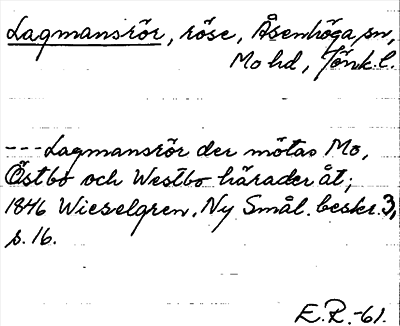 Lagmansrör, röse, Åsenhöga sn,
Mo hd, Jönk.l.
---Lagmansrör der mötas Mo,
Östbo och Westbo härader åt;
1846 Wieselgren, Ny Smål. beskr. 3,
s. 16.
E.R.-61.